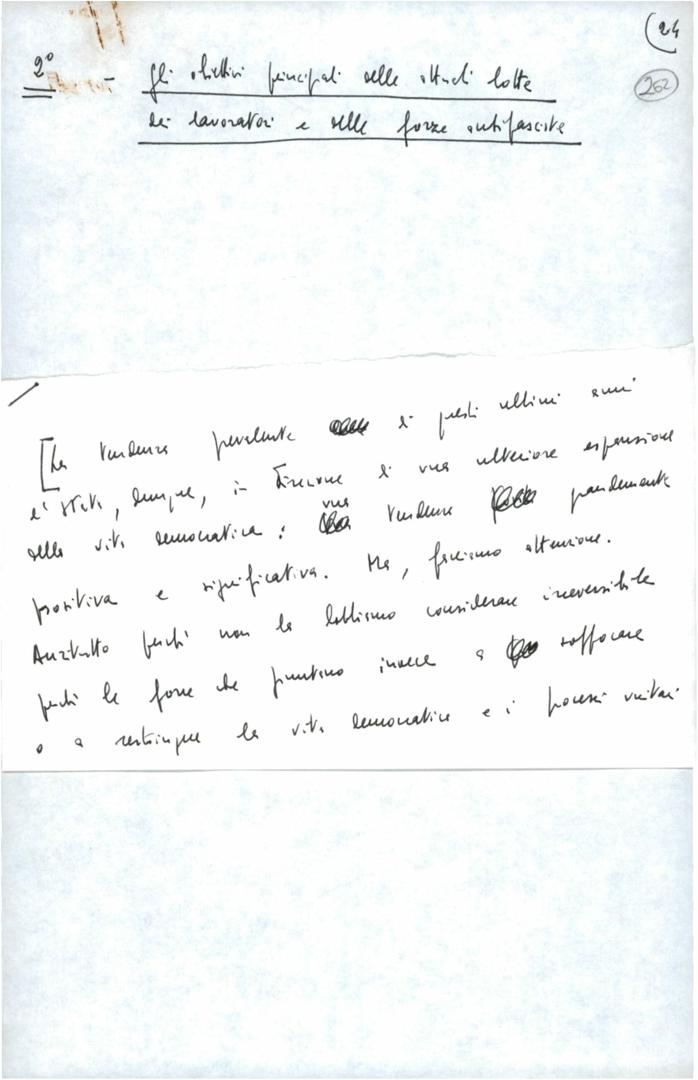 (24
262
2° - Gli obiettivi principali delle attuali lotte
dei lavoratori e delle forze antifasciste
[La tendenza prevalente di questi ultimi anni
è stata, dunque, in direzione di una ulteriore espansione
della vita democratica: una tendenza grandemente
positiva e significativa. Ma, facciamo attenzione.
Anzitutto perché non la dobbiamo considerare irreversibile
perché le forze che puntano invece a soffocare
o a restringere la vita democratica e i processi unitari